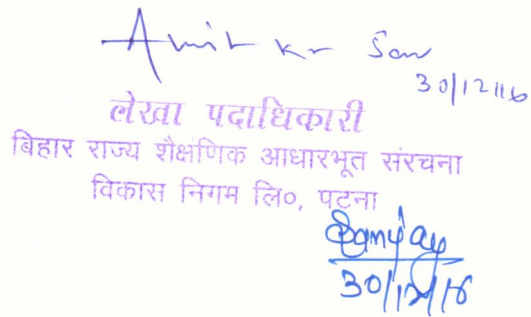 Amit kr Sau
30/12/16
लेखा पदाधिकारी
बिहार राज्य शैक्षणिक आधारभूत संरचना
विकास निगम लि०, पटना
Sanjay
30/12/16